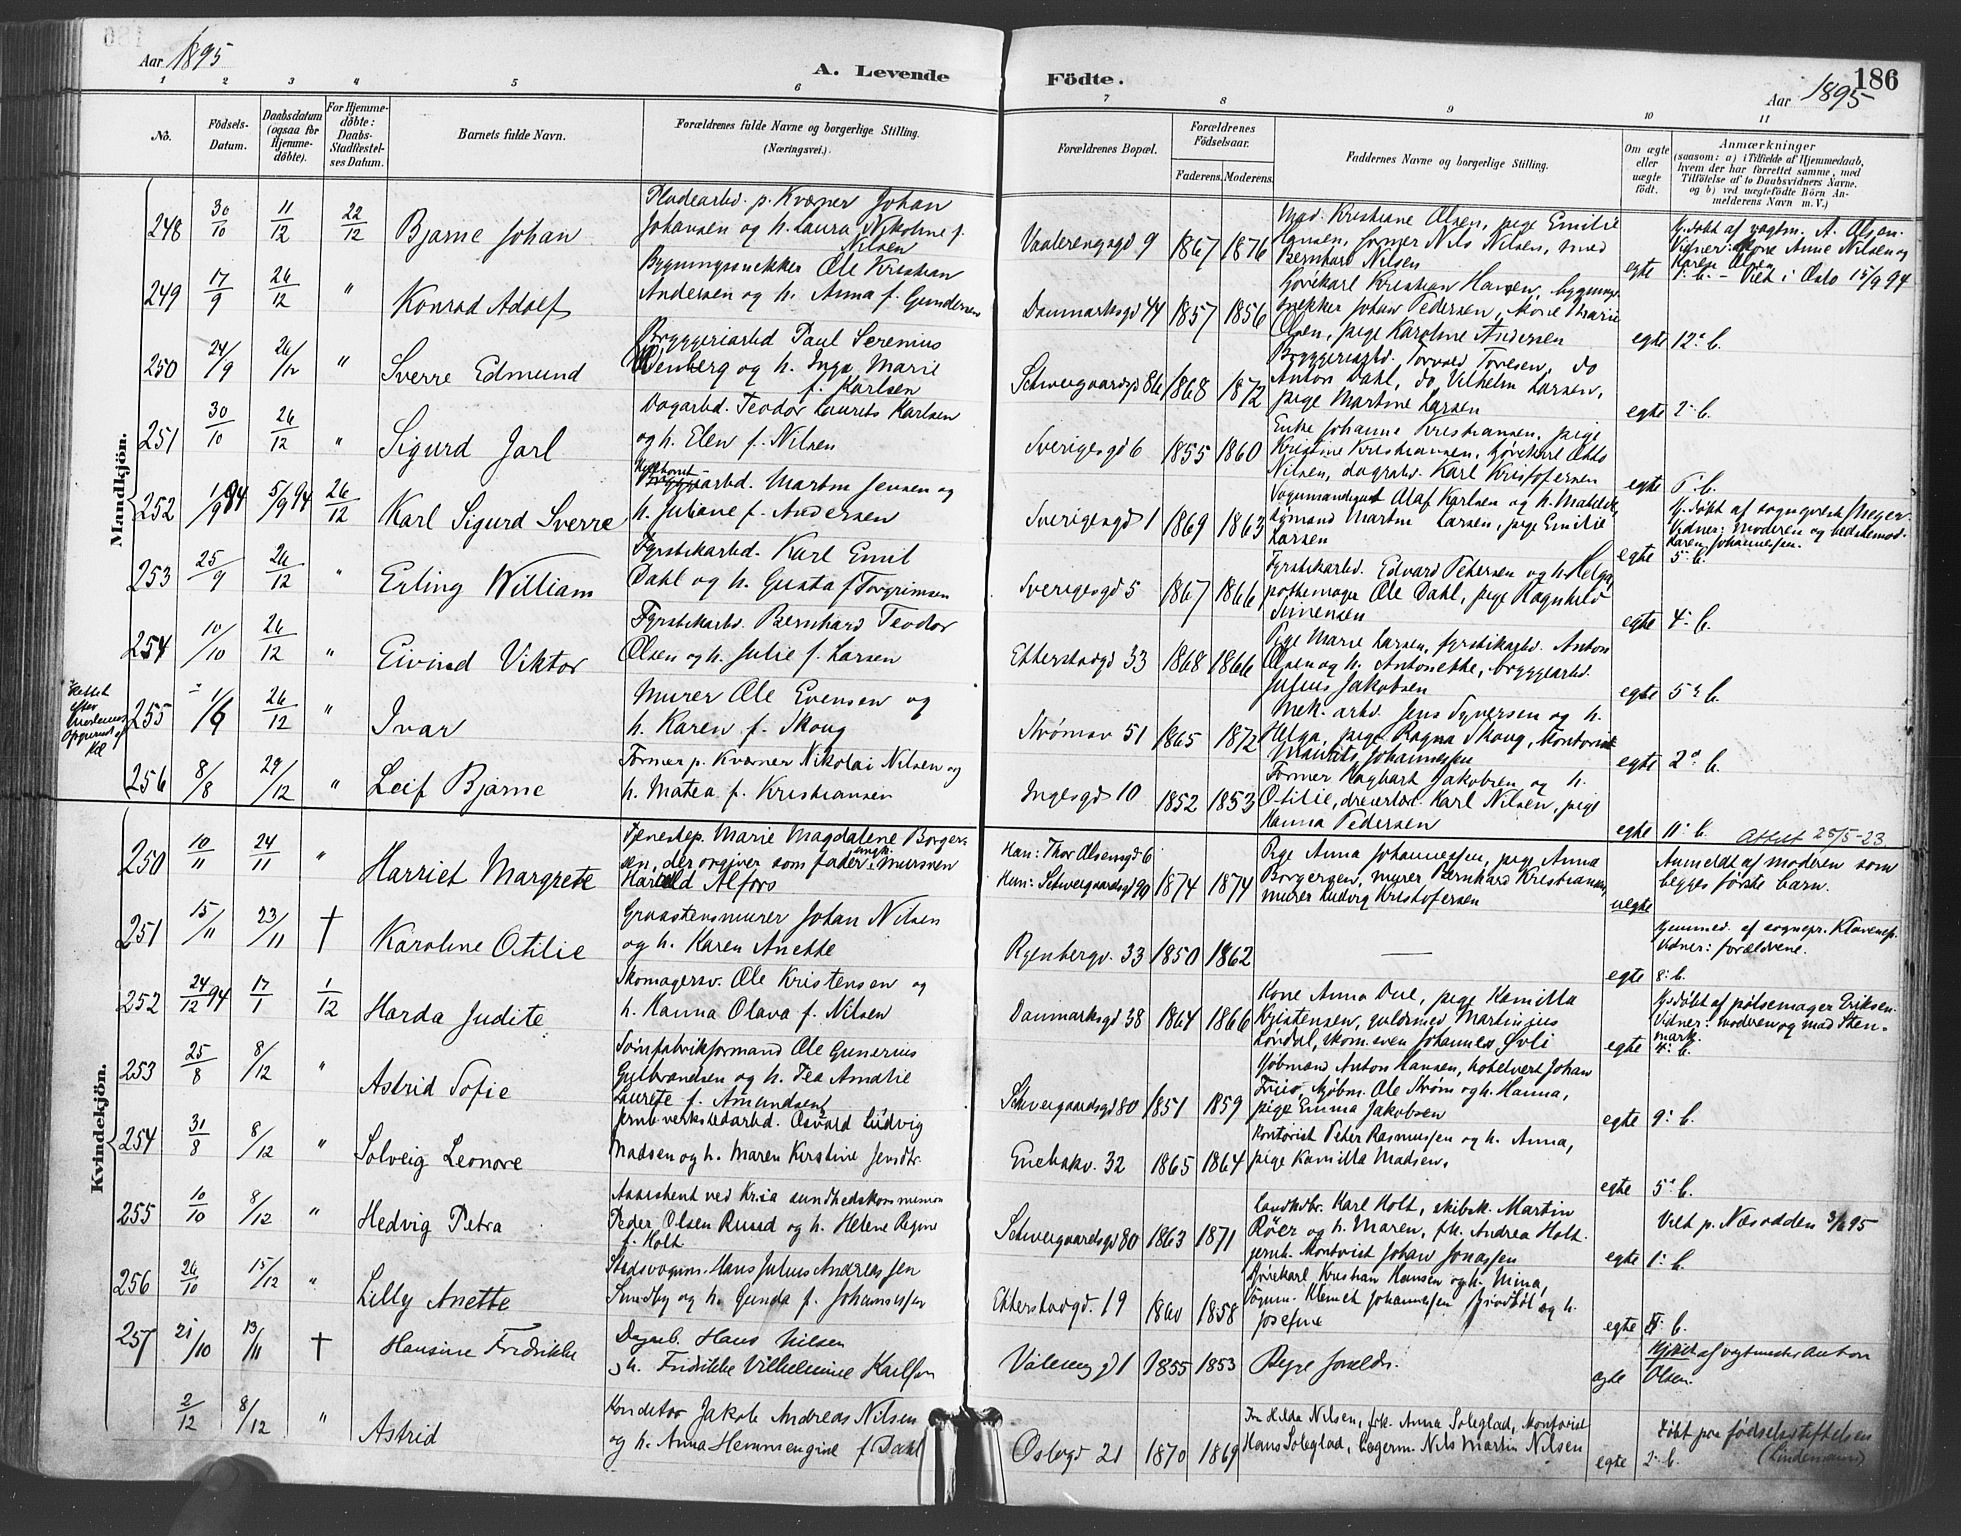 Aar 1895
A. Levende
Födte.
186
Aar 1895
1 2 3 4 5 6 7 8 9 10 11
No.
Födsels-
Datum.
Daabsdatum
(ogsaa för
Hjemme-
døbte).
For Hjemme-
døbte:
Daabs-
Stadfæstel-
ses Datum.
Barnets fulde Navn.
Forældrenes fulde Navne og borgerlige Stilling.
(Næringsvei.)
Forældrenes Bopæl.
Forældrenes
Födselsaar.
Faderens. Moderens.
Faddernes Navne og borgerlige Stilling.
Om ægte
eller
uægte
født.
Anmærkninger
(saasom: a) i Tilfælde af Hjemmedaab,
hvem der har forrettet samme, med
Tilföielse af to Daabsvidners Navne.
og b) ved uægtefödte Börn An-
melderens Navn m. V.)
Mandkjön.
248 30/10 11/12 22/12 Bjarne Johan
Pladearbd. p. Kværner Johan
Johansen og h. Laura Nikoline f.
Nilsen
Vaalerengsgd 9 1867 1876
Mad. Kristiane Olsen, pige Emilie
Hansen, former Nils Nilsen, mad
Bernhard Nilsen
egte
Hj. døbt af vagtm. A. Olsen.
Vidner: kone Anne Nilsen og
Karen Olsen
1. b. – Viet i Oslo 15/9 94
249 17/9 26/12 " Konrad Adolf
Bygningssnekker Ole Kristian
Andersen og h. Anna f. Gundersen
Danmarksgd 44 1857 1856
Gjørekarl Kristian Hansen, bygnings-
snekker Johan Pedersen, Marie
Olsen, pige Karoline Andersen
egte 12. b.
250 24/9 26/12 " Sverre Edmund
Bryggeriarbd Paul Serenius
og h. Inga Marie
f. Karlsen
Schweigaardsgd 86 1868 1872
Bryggeriarbd. Torvald Toresen, do
Anton Dahl, do, Vilhelm Larsen,
pige Martine Larsen
egte 2. b.
251 30/10 26/12 " Sigurd Jarl
Dagarbd. Teodor Laurits Karlsen
og h. Elen f. Nilsen
Sverigesgd 6 1855 1860
Enke Johanne Kristiansen, pige
Kristine Kristiansen, Gjørekarl Otto
Nilsen, dagarbd. Karl Kristofersen
egte
252 1/9 94 5/9 94 26/12 Karl Sigurd Sverre
arbd. Martin Jensen og
h. Juliane f. Andersen
Sverigesgd 1 1869 1863
Vognmandsgut Olaf Karlsen og h. Matilde,
Martin Larsen, pige Emilie
Larsen
egte
Hj. døbt af sogneprest
Vidner: moderen og bedstemod.
Karen Johannessen.
5. b.
253 25/9 26/12 " Erling William
Fyrstikarbd. Karl Emil
Dahl og h. Gusta f. Torgrimsen
Sverigesgd 5 1867 1866
Fyrstikarbd. Edvard Petersen og h. Helga,
pottemager Ole Dahl, pige Ragnhild
Simensen
egte 4. b.
254 10/10 26/12 " Eivind Viktor
Fyrstikarbd. Bernhard Teodor
Olsen og h. Julie f. Larsen
Etterstadgd 33 1868 1866
Pige Marie Larsen, fyrstikarbd. Anton
Olsen og h. Antonette, bryggearbd.
Julius Jakobsen
egte 5. b.
Rettet
efter
255 1/6 26/12 " Ivar
Murer Ole Evensen og
h. Karen f. Skoug
Strømsv 51 1865 1872
Mek. arbd. Jens Syversen og h.
Helga, pige Ragna Skoug, kontorist
Mauritz Johannessen
egte 2. b.
256 8/8 29/12 " Leif Bjarne
Former p. Kværner Nikolai Nilsen og
h. Matea f. Kristiansen
Ingesgd 10 1852 1853
Former Hagbart Jakobsen og h.
Otilie, dreierlær. Karl Nilsen, pige
Hanna Pedersen
egte 11. b. Attest 25/5-23
Kvindekjön.
250 10/11 24/11 " Harriet Margrete
Tjenestep. Marie Magdalene Borger-
sen, der opgiver som fader: ungk. mursven
Harald Alfors
Hun: Thor Olsensgd 6
Han: Schweigaardsgd 90 1874 1874
Pige Anna Johannessen, pige Anna
Borgersen, murer Bernhard Kristiansen,
murer Ludvig Kristofersen
uegte
Anmeldt af moderen som
begges første barn.
251 15/11 23/11 † Karoline Otilie
Graastensmurer Johan Nilsen
og h. Karen Anette
Ryenbergv. 33 1850 1862
—
egte
Hjemmed. af sognepr. Klavenes.
Vidner: forældrene.
8. b.
252 24/12 94 17/1 1/12 Harda Judite
Skomagersv. Ole Kristensen og
h. Hanna Olava f. Nilsen
Danmarksgd 38 1864 1866
Kone Anna Due, pige Kamilla
Kristensen, guldsmed Martinius
Løvdal, skom. sven Johannes Øvli
egte
Hj. døbt af pølsemager Eriksen.
Vidner: moderen og mad Sten-
mark.
4. b.
253 25/8 8/12 " Astrid Sofie
Sømfabrikformand Ole Gunerius
Gulbrandsen og h. Tea Amalie
Laurete f. Amundsen
Schweigaardsgd 80 1851 1859
Kjøbmand Anton Hansen, hotelvert Johan
Friis, kjøbm. Ole Strøm og h. Hanna,
pige Emma Jakobsen
egte 9. b.
254 31/8 8/12 " Solveig Leonore
Jernb. verkstedarbd. Osvald Ludvig
Madsen og h. Maren Kirstine
Enebakv. 32 1865 1864
Kontorist Peter Rasmussen og h. Anna,
pige Kamilla Madsen.
egte 5. b.
255 10/10 8/12 " Hedvig Petra
Assistent ved Kria sundhedskommission
Peder Olsen Rusud og h. Helene Regine
f. Holt
Schweigaardsgd 80 1863 1871
Landhdbr. Karl Holt, skibsk. Martin
Røer og h. Maren, frk. Andrea Holt,
jernb. kontorist Johan Jonassen
egte
Viet p. Næsodden 3/ 95
1. b.
256 26/10 15/12 " Lilly Anette
Stadsvognm. Hans Julius Andreassen
Sundby og h. Gunda f. Johannessen
Etterstadgd. 19 1860 1858
Gjørekarl Kristian Hansen og h. Mina,
vognm. Klemet Johannesen og h.
Josefine
egte b.
257 21/10 13/11 † Hansine Fredrikke
Dagarb. Hans Nilsen
og h. Fredrikke Vilhelmine Karlsen
Våleng gd 1 1855 1853
Begge foreldr.
egte
Hj. døbt af vagtmester Anton
Olsen.
2/12 8/12 " Astrid
Konditor Jakob Andreas Nilsen
og h. Anna Hemmengine f. Dahl
Oslogd 21 1870 1869
Frk Hilda Nilsen, frk. Anna Soleglad, kontorist
Hans Soleglad, lagerm. Nils Martin Nilsen
egte
Døbt paa fødselsstiftelsen
(Lindemann)
2. b.